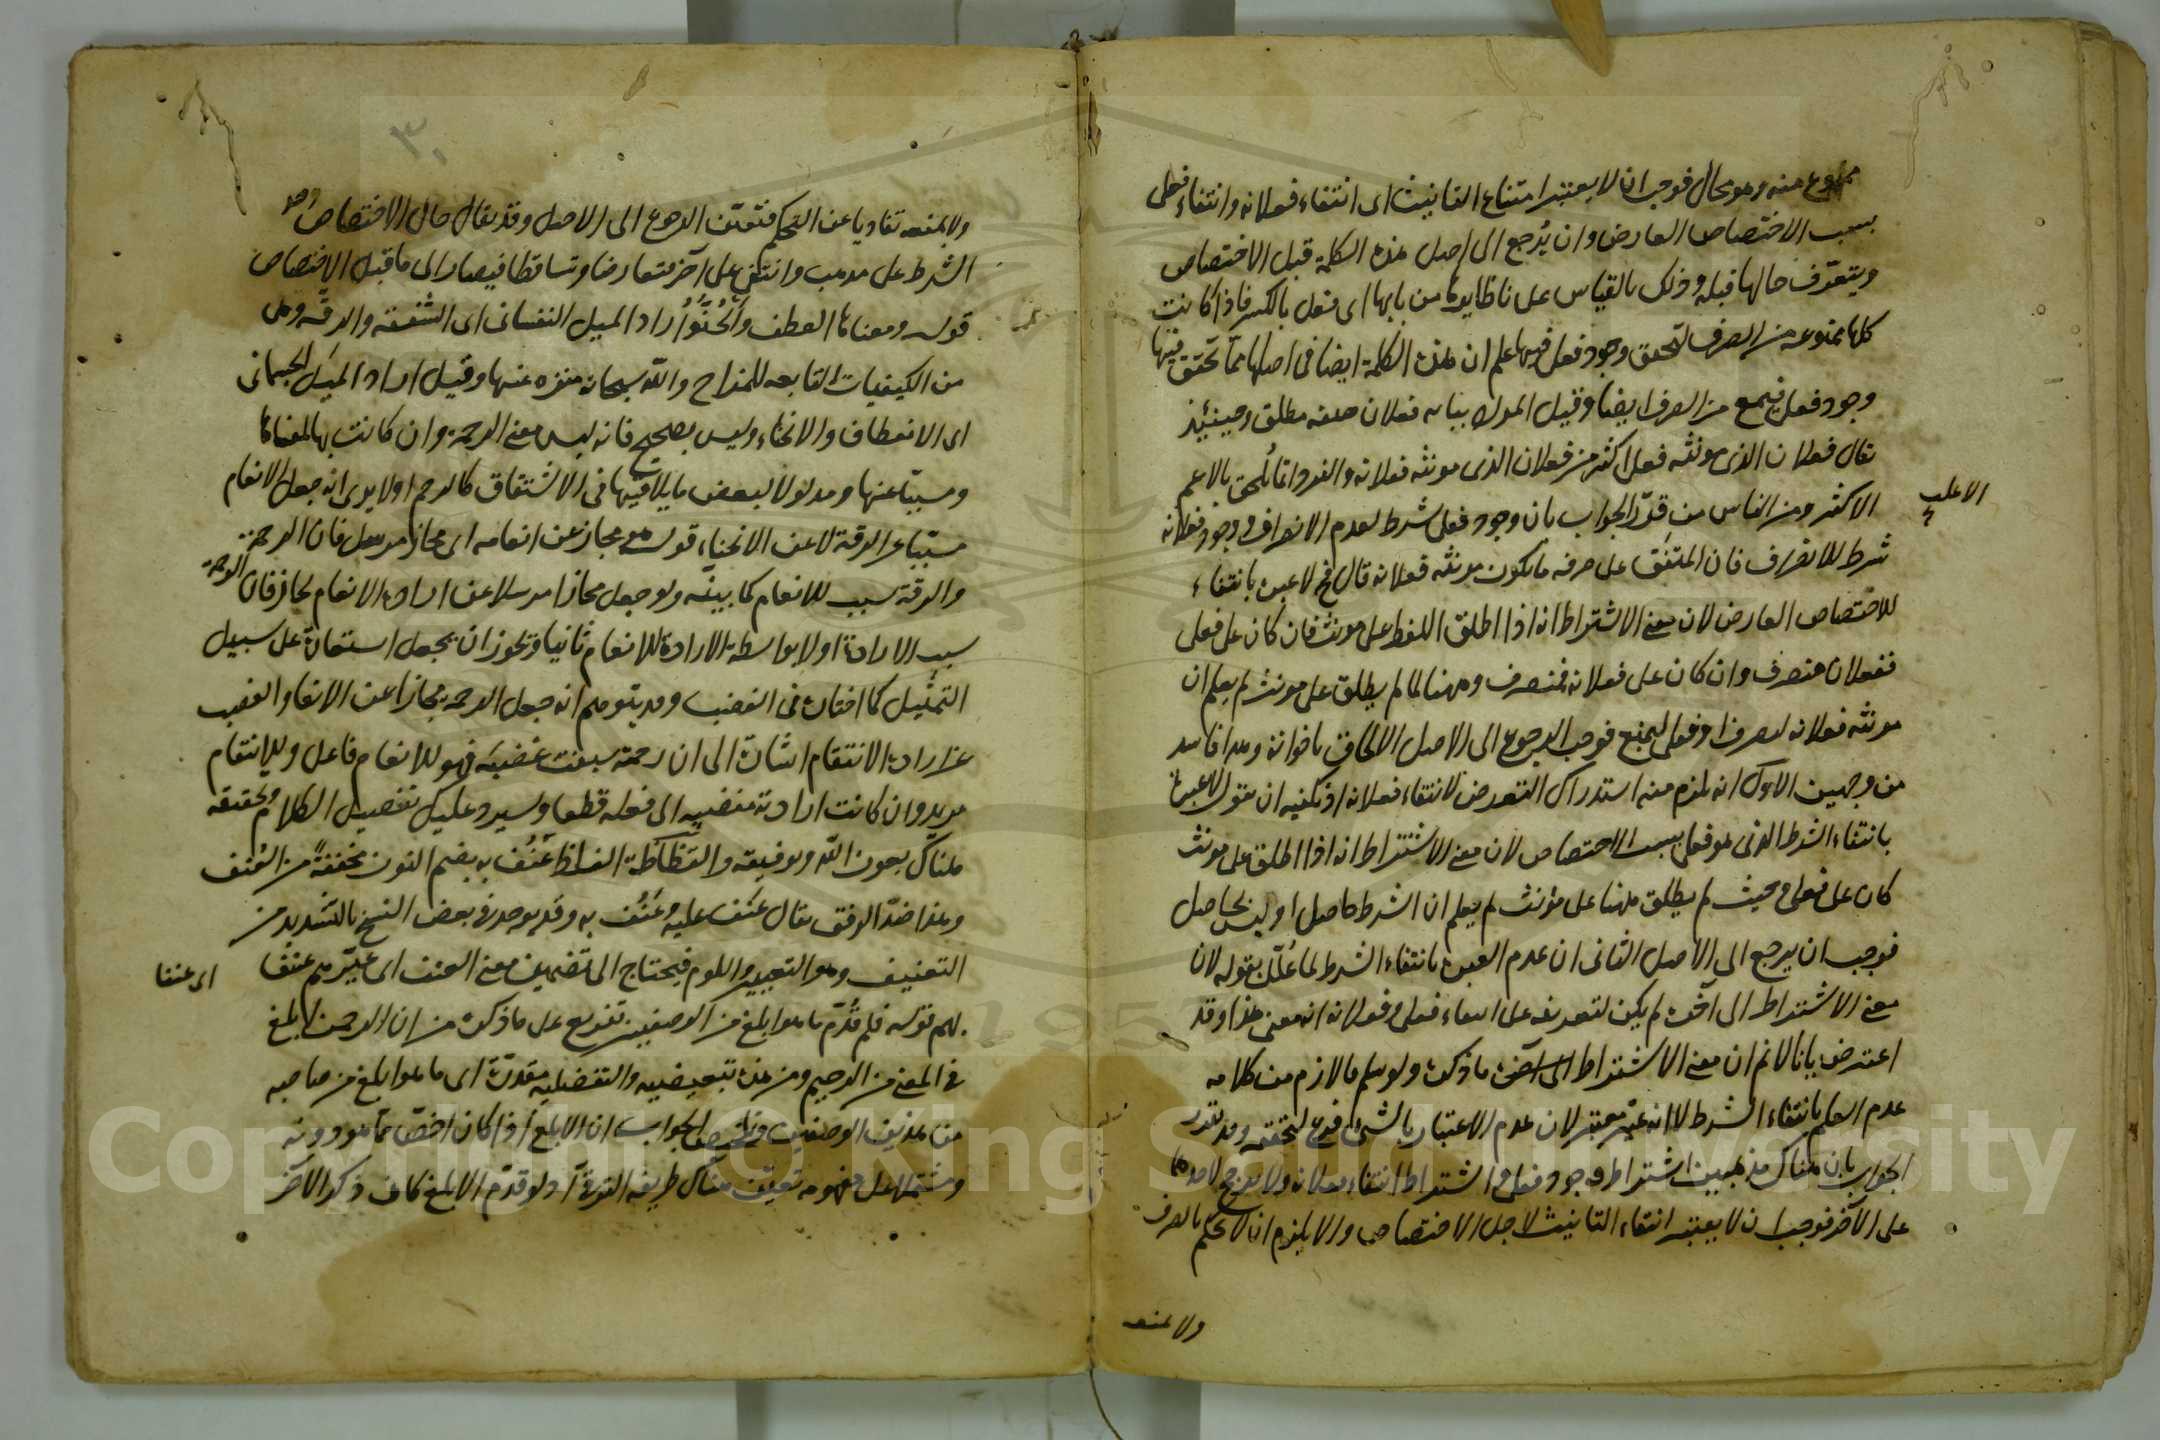 ممنوع منه وهو محال فوجب ان لا يعتبر امتناع التانيث اى انتفاء فعلانه وانتفاء فعلى
بسبب الاختصاص العارض وان يُرجع الى اصل هذه الكلمة قبل الاختصاص
ويتعرّف حالها قبله وذلك بالقياس على نظايرها من بابها اى فعل بالكسر فاذا كانت
كلها ممنوعه من الصرف لتحقق وجود فعلى فيها علم ان هذه الكلمة ايضا فى اصلها مما تحقق فيها
وجود فعلى فيمنع من الصرف ايضا وقيل المراد ببنائه فعلان صفه مطلق وحينئذ
يقال فعلان الذى مونثه فعلى اكثر من فعلان الذى مونثه فعلانه والفرد انما يُلحق بالاعم
الاغلب
الاكثر ومن الناس من قرّر الجواب بان وجود فعلى شرط لعدم الانصراف ووجود فعلانه
شرط للانصراف فان المتفق على صرفه ما يكون مونثه فعلانه قال فح لا عبره بانتفاء
للاختصاص العارض لان معنى الاشتراط انه اذا اطلق اللفظ على مونث فان كان على فعلى
ففعلان منصرف وان كان على فعلانه فمنصرف وههنا لما لم يطلق على مونث لم يعلم ان
مونثه فعلانه ليصرف او فعلى ليمنع فوجب الرجوع الى الاصل الالحاق باخواته وهذا فاسد
من وجهين الاول انه يلزم منه استدراك التعرض لانتفاء فعلانه اذ يكفيه ان يقول لا عبرة
بانتفاء الشرط الذى هو فعلى بسبب الاختصاص لان معنى الاشتراط انه اذا اطلق على مونث
كان على فعلى وحيث لم يطلق ههنا على مؤنث لم يعلم ان الشرط حاصل او ليس بحاصل
فوجب ان يرجع الى الاصل الثانى ان عدم العبره بانتفاء الشرط لما علّل بقوله لان
معنى الاشتراط الى آخره لم يكن لتعريفه على انتفاء فعلى وفعلانه انه معنى هذا وقد
اعترض بانا لا نم ان معنى الاشتراط ما ذكره ولو سلم فاللازم من كلامه
عدم العلم بانتفاء الشرط لا انه غير معتبر لان عدم الاعتبار بالشئ فرع لتحققه وقد تقرر
الجواب بان هناك مذهبين اشتراط وجود فعلى واشتراط انتفاء فعلانه ولا ترجح لاحدهما
على الآخر فوجب ان لا يعتبر انتفاء التانيث لاجل الاختصاص والا يلزم ان لا يحكم بالصرف
ولا بمنعه
٣٠
ولا بمنعه تفاديا عن التحكم فتعيّن الرجوع الى الاصل وقد يقال حال الاختصاص وجد
الشرط على مذهب وانتفى على آخر فتعارضا وتساقطا فيصار الى ما قبل الاختصاص
قوله ومعناها العطف والحُنُوُّ اراد الميل النفسانى اى الشفقه والرقّه وهى
من الكيفيات التابعه للمزاح والله سبحانه منزه عنها وقيل اراد الميَل الجسمانى
اى الانعطاف والانحناء وليس بصحيح فانه ليس معنى الرحمة وان كانت بالمعناها
ومسببا عنها ومدلولا لبعض ما يلاقيها فى الاشتقاق كالرحم او لا يرى انه جعل الانعام
مسبّبا عن الرقة لا عن الانحناء قوله هو مجاز عن انعامه اى مجاز مرسل فان الرحمة
والرقة سبب للانعام كما بينّه ولو جعل مجازا مرسلا عن ارادة الانعام لجاز فان الرحمة
سبب الارادة اولا وبواسطة الارادة للانعام ثانيا ويجوز ان يجعل استعارة على سبيل
التمثيل كما اختاره فى الغضب وقد يتوهم انه جعل الرحمه مجازا عن الانعام والغضب
عن ارادة الانتقام اشارة الى ان رحمته سبقت غضبَه فهو للانعام فاعل وللانتقام
مريد وان كانت ارادته مفضيه الى فعله قطعا وسيرد عليك تفصيل الكلام وتحقيقه
هناك بعون الله وتوفيقه والفَظَاظَة الغِلَظ عَنُف به بضم النون مخففةً من العُنف
وهذا ضدّ الرفق يقال عَنُف عليه وعَنُف به وقد يوجد فى بعض النسخ بالتشديد من
التعنيف وهو التعيير واللوم فيحتاج الى تضمين معنى العنف اى عيّرهم عنفا
اى عنفا
بهم قوله فلم قُدّم ما هو ابلغ من الوصفين تفريع على ما ذكره من ان الرحمن ابلغ
فى المعنى من الرحيم ومن هذه تبعيضيه والتفضيليه مقدرة اى ما هوا بلغ من صاحبه
من هذين الوصفين وتلخيص الجواب ان الابلغ اذا كان اخصّ مما هو دونه
ومشتملا على مفهومه تعيّن هناك طريقه الترقى اذ لو قدّم الابلغ كان ذكر الآخر